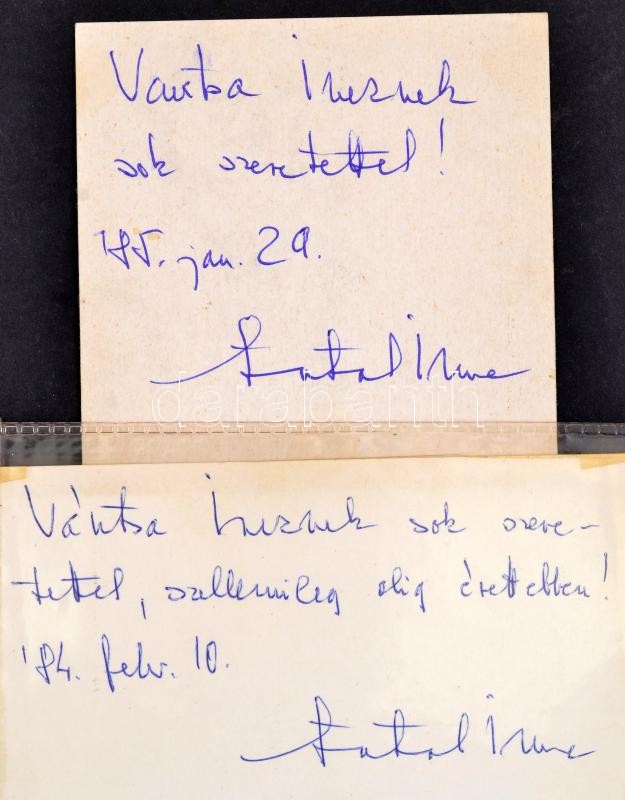 Vántsa Ineznek
sok szeretettel!
'85. jan. 29.
Antal Imre
darabanth
Vántsa Ineznek sok szere-
tettel, szellemileg alig érettebben!
'84. febr. 10.
Antal Imre